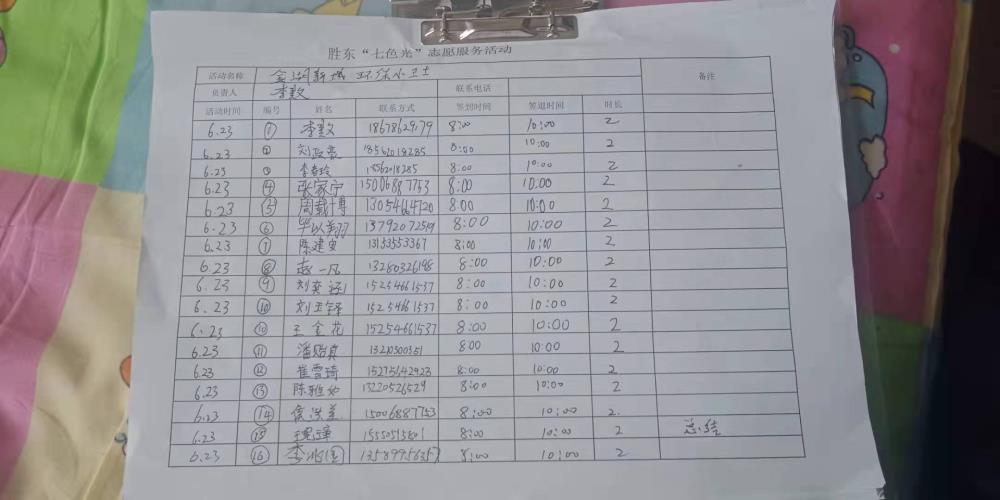 胜东“七色光”志愿服务活动
活动名称 金湖新城 环保小卫士 备注
负责人 李敦 联系电话
活动时间 编号 姓名 联系方式 签到时间 签退时间 时长
6.23 ① 李敦 18678629179 8:00 10:00 2
6.23 ② 刘政豪 18562018285 8:00 10:00 2
6.23 ③ 李春玲 18562018285 8:00 10:00 2
6.23 ④ 张家宁 15006887753 8:00 10:00 2
6.23 ⑤ 周载博 13054664720 8:00 10:00 2
6.23 ⑥ 毕以翔 13792072519 8:00 10:00 2
6.23 ⑦ 陈建安 13153553367 8:00 10:00 2
6.23 ⑧ 赵一凡 13280326198 8:00 10:00 2
6.23 ⑨ 刘奕 15254661537 8:00 10:00 2
6.23 ⑩ 刘玉铎 15254661537 8:00 10:00 2
6.23 ⑩ 王金花 15254661537 8:00 10:00 2
6.23 ⑪ 潘贻真 13210300351 8:00 10:00 2
6.23 ⑫ 崔雪琦 15275642923 8:00 10:00 2
6.23 ⑬ 陈雅如 13220526529 8:00 10:00 2
6.23 ⑭ 15006887753 8:00 10:00 2.
6.23 ⑮ 15550513801 8:00 10:00 2 总结
6.23 ⑯ 李兆国 13589956357 8:00 10:00 2